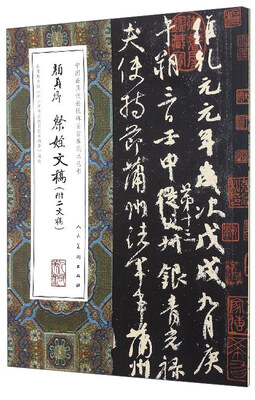 維乾元元年歲次戊戌九月庚
午朔三日壬申從父銀青光祿
第十三
夫使持節蒲州諸軍事蒲州
中国最具代表性碑帖临摹范本丛书
顏真卿 祭姪文稿(附二文稿)
人民美术出版社